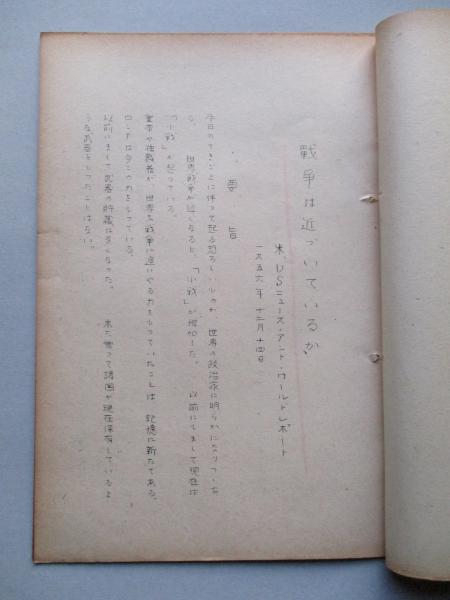 戰争は近づいているか
米、USニュース・アンド・ワールドレポート
一九五六年十二月十四日
要旨
今日のできごとに伴って起る恐ろしいものが、世界の政治家に明らかになりつつあ
る。世界戦争が近くなると、「小戦」が増加した。以前にもまして現在は
「小戦」が起っている。
皇帝や独裁者が、世界を戦争に追いやる力をもっていたことは、記憶に新たである。
は今この力をもっている。
以前にまして武器の貯蔵は多くなった。未だ曽つて諸国が現在保有しているよ
うな武器をもったことはない。